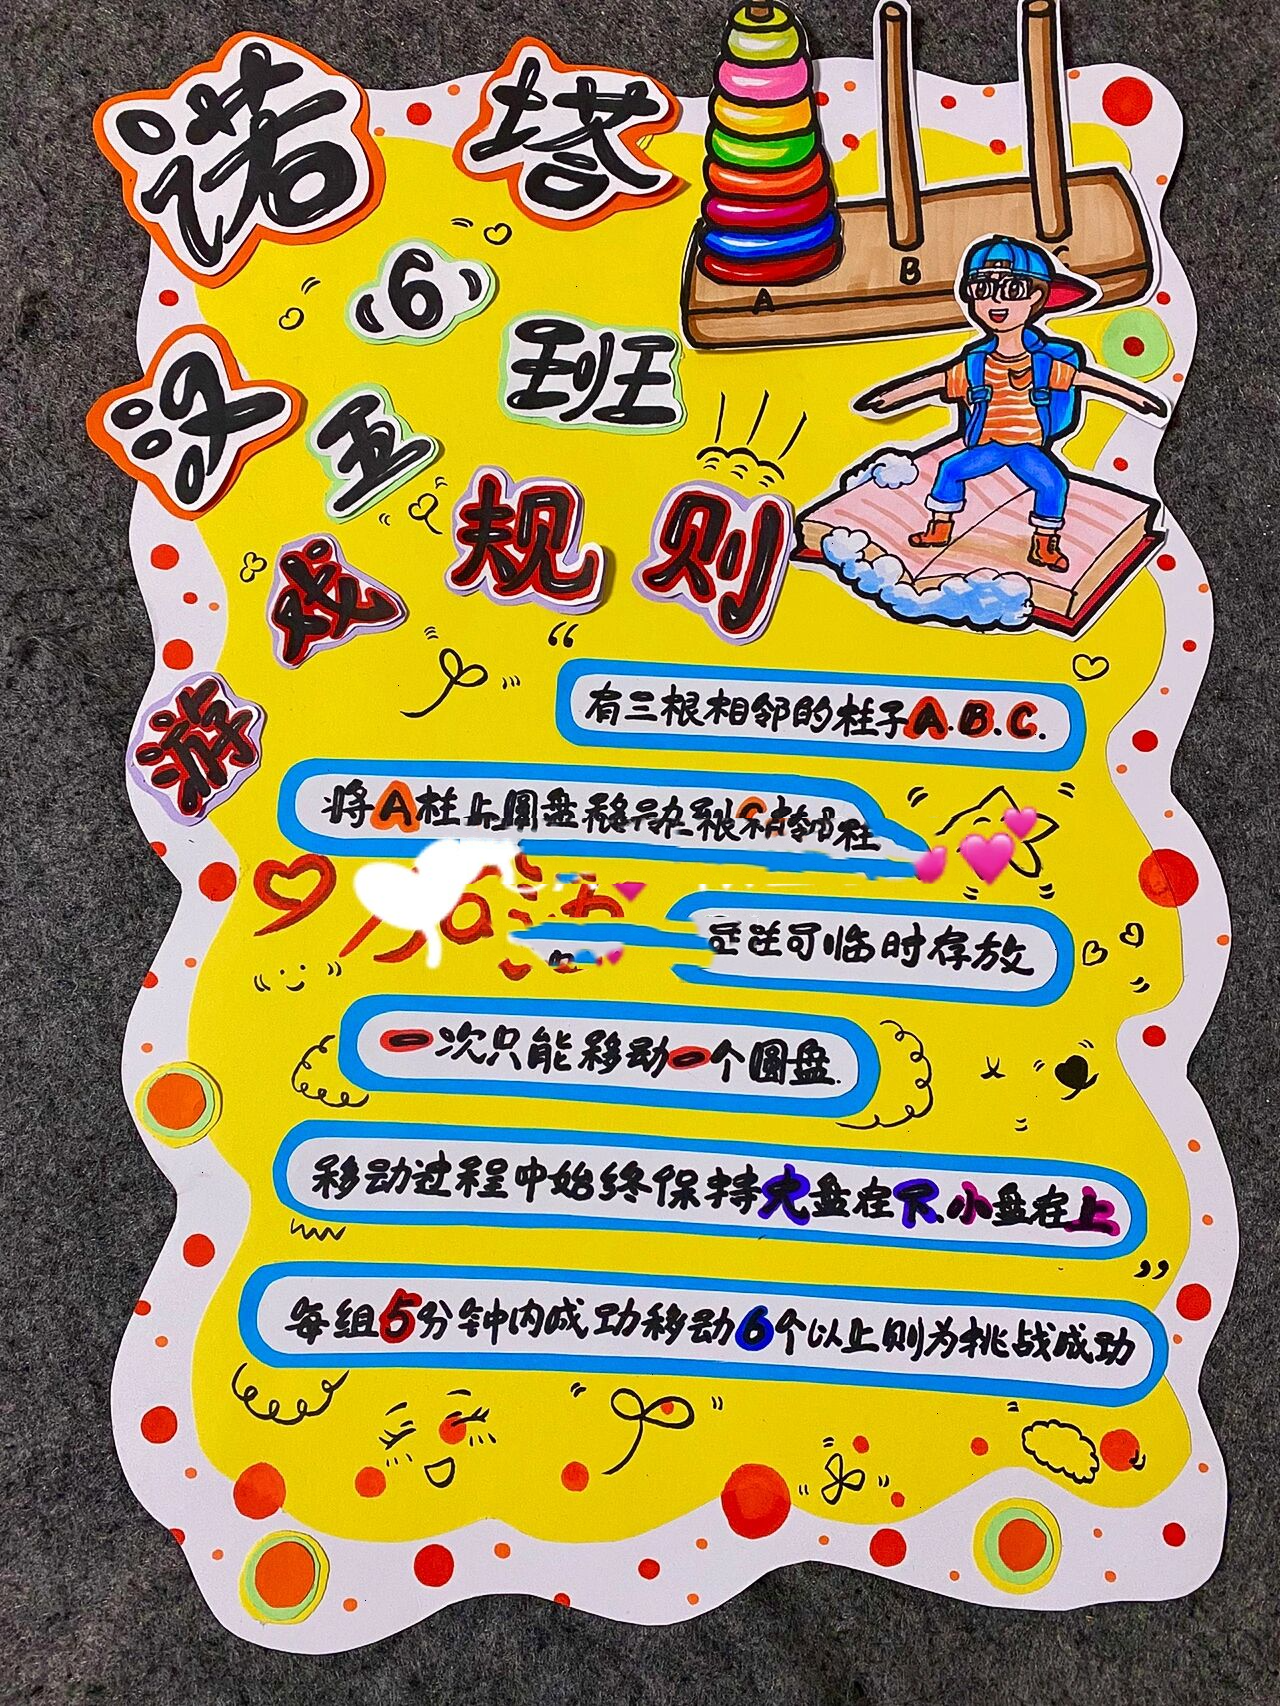 汉诺塔
五(6)班
游戏规则
A
B
C
“
有三根相邻的柱子A.B.C.
将A柱上圆盘移动到C柱
柱可临时存放
一次只能移动一个圆盘.
移动过程中始终保持大盘在下、小盘在上
”
每组5分钟内成功移动6个以上则为挑战成功